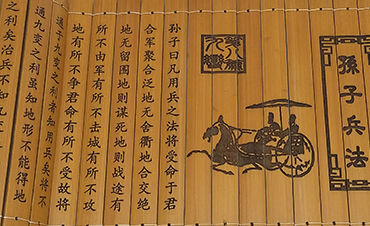 孫子兵法
孙子曰凡用兵之法将受命于君
合军聚合泛地无舍衢地合交绝
地无留围地则谋死地则战途有
所不由军有所不击城有所不攻
地有所不争君命有所不受故将
通于九变之利者知用兵矣将不
通九变之利虽知地形不能得地
之利矣治兵不知九